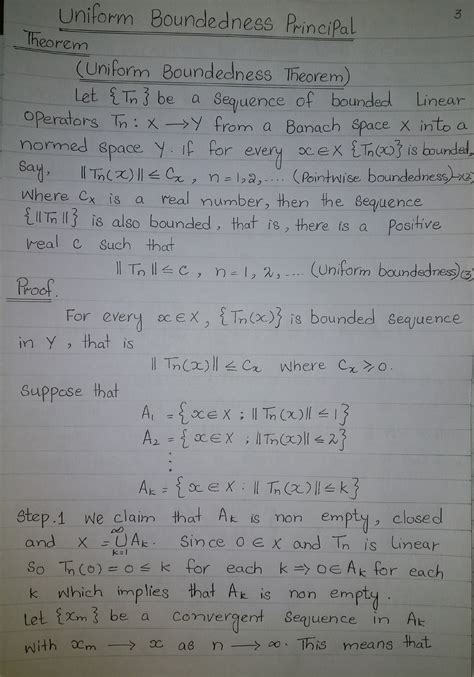 3
Uniform Boundedness Principal
Theorem
(Uniform Boundedness Theorem)
Let {Tn} be a sequence of bounded Linear
operators Tn : X → Y from a Banach space X into a
normed space Y. If for every x ∈ X {Tn(x)} is bounded,
say, ‖Tn(x)‖ ≤ Cx , n = 1,2, .... (Pointwise boundedness)
where Cx is a real number, then the sequence
{‖Tn‖} is also bounded, that is, there is a positive
real c such that
‖Tn‖ ≤ c , n = 1, 2, .... (Uniform boundedness) (3)
Proof.
For every x ∈ X , {Tn(x)} is bounded sequence
in Y , that is
‖Tn(x)‖ ≤ Cx where Cx ⩾ 0.
Suppose that
A1 = {x ∈ X ; ‖Tn(x)‖ ≤ 1}
A2 = {x ∈ X ; ‖Tn(x)‖ ≤ 2}
⋮
Ak = {x ∈ X : ‖Tn(x)‖ ≤ k}
Step.1 We claim that Ak is non empty, closed
and X = ∞∪k=1 Ak. Since 0 ∈ X and Tn is linear
so Tn(0) = 0 ≤ k for each k ⇒ 0 ∈ Ak for each
k which implies that Ak is non empty.
Let {xm} be a convergent sequence in Ak
with xm → x as n → ∞. This means that